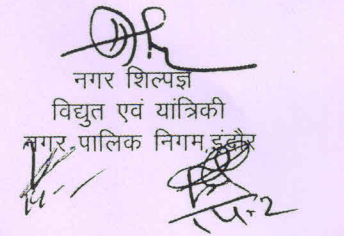 नगर शिल्पज्ञ
विद्युत एवं यांत्रिकी
नगर पालिक निगम, इंदौर